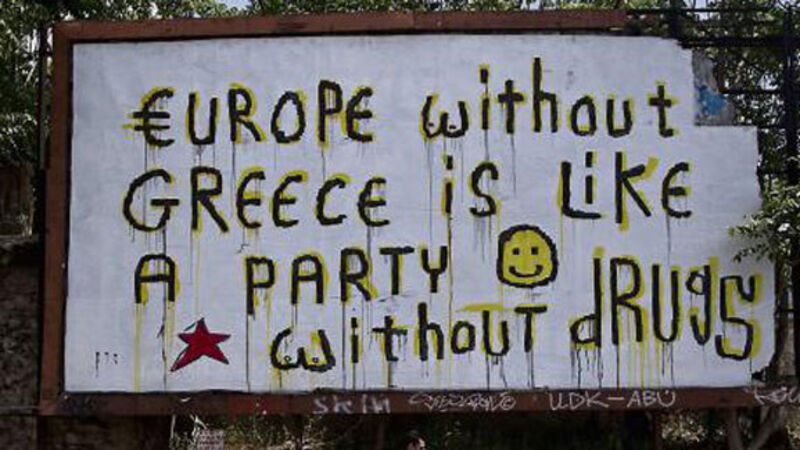 €UROPE without
GREECE is LiKE
A PARTY
without dRUgS
UDK-ABU